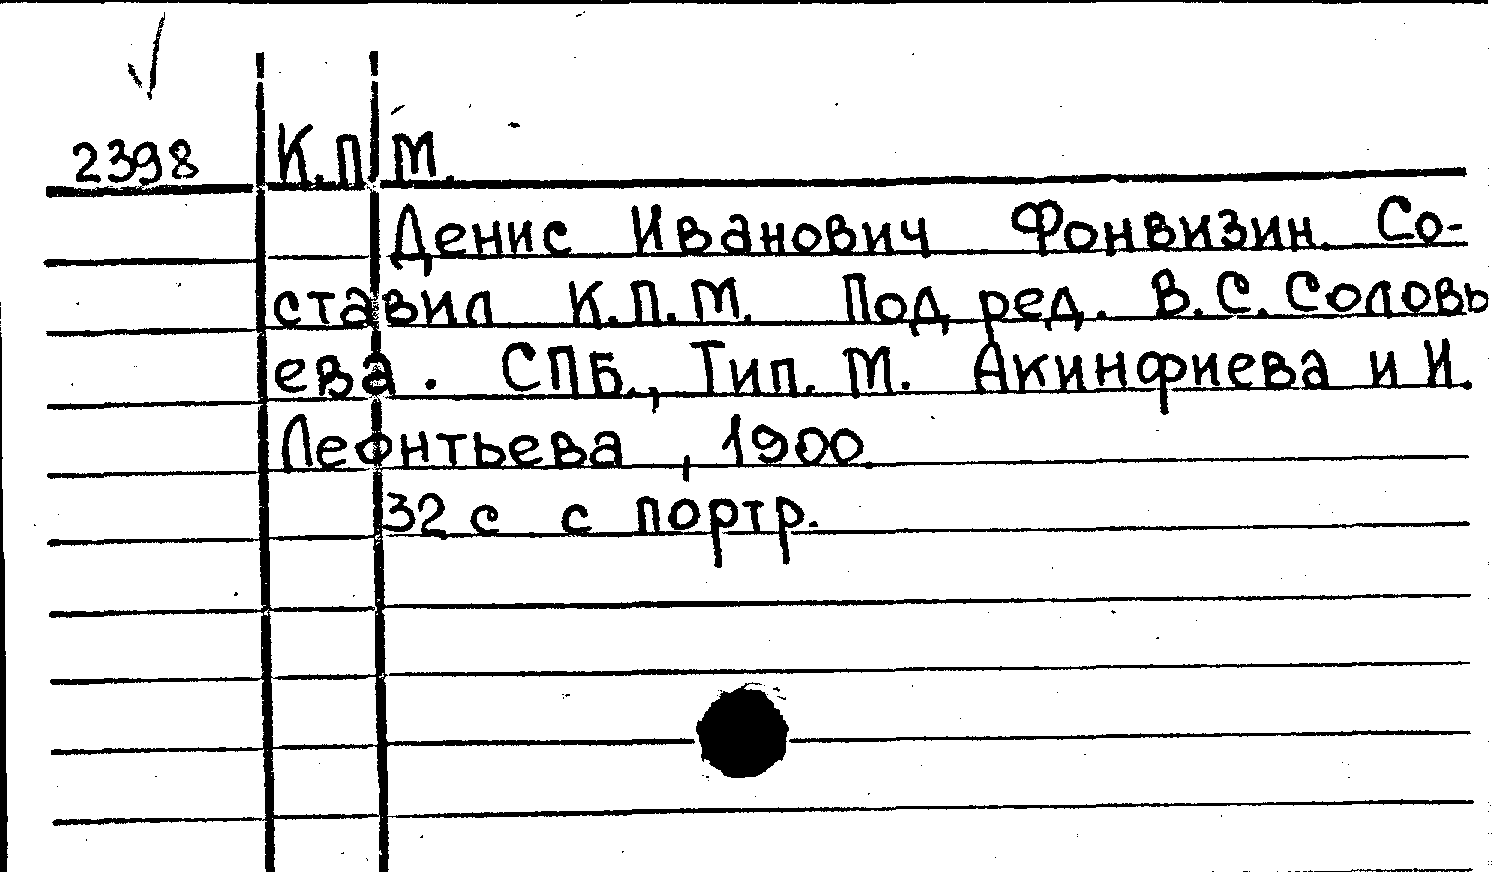 2398 К.П.М.
Денис Иванович Фонвизин. Со-
ставил К.П.М. Под ред. В.С. Соловь
ева. СПБ., Тип. М. Акинфиева и И.
Леонтьева, 1900.
32 с с портр.